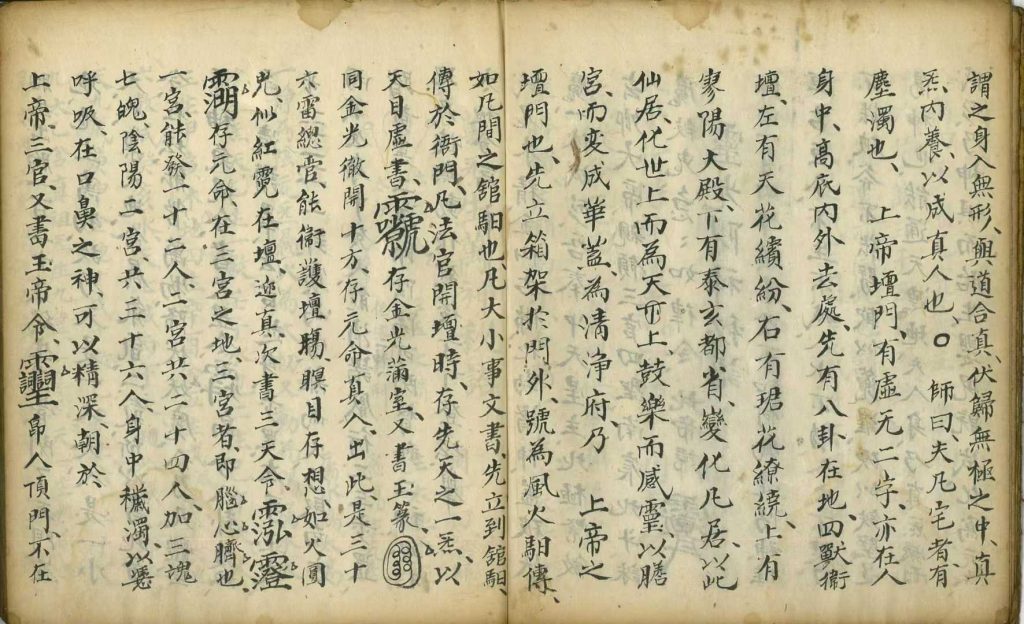 謂之身入無形、與道合真、伏歸無極之中、真
炁内養、以成真人也、○ 師曰、夫凡宅者有
塵濁也、 上帝壇門、有虛无二字、亦在人
身中、高底内外去處、先有八卦在地、四獸衛
壇、左有天花繽紛、右有珺花繚繞、上有
寥陽大殿、下有泰玄都省、變化凡居、以此
仙居、化世上而為天帀上、鼓樂而感靈、以膳
宮、而变成華蓋、為清淨府、乃 上帝之
壇門也、先立箱架於門外、號為風火馹傳、
如凡間之舘馹也、凡大小事文書、先立到舘馹、
傳於衙門、凡法官開壇時、存先天之一炁、以
天目虛書、存金光蒲室、又書玉篆、
同金光徹開十方、存元命真人、出此是三十
六雷總管、能衛護壇腸、瞑目存想、如火圓
光、似紅霓在壇、迎真、次書三天令、
存元命、在三宮之地、三宮者、即腦心臍也、
一宮、能發一十二人、二宮共二十四人、加三魂
七魄、陰陽二宮、共三十六人、身中穢濁、以憑
呼吸、在口鼻之神、可以精深、朝於
上帝、三官、又書玉帝令、帛人頂門、不在